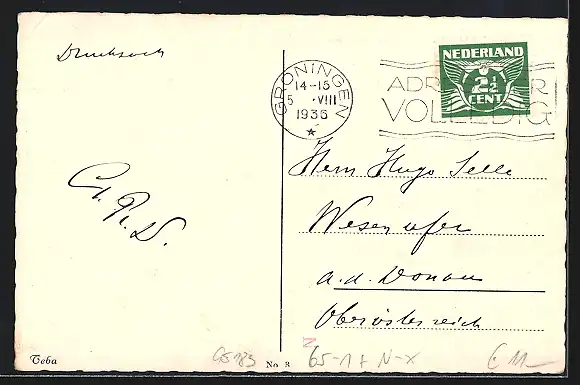 Drucksach
GRONINGEN
14-15
5 .VIII
1936
NEDERLAND
2½
CENT
ADR R
VOLLEDIG
Herrn Hugo Selle
Wesenufer
a.d. Donau
Oberösterreich
Teba
No 8
65-17 N-X
€ 11-